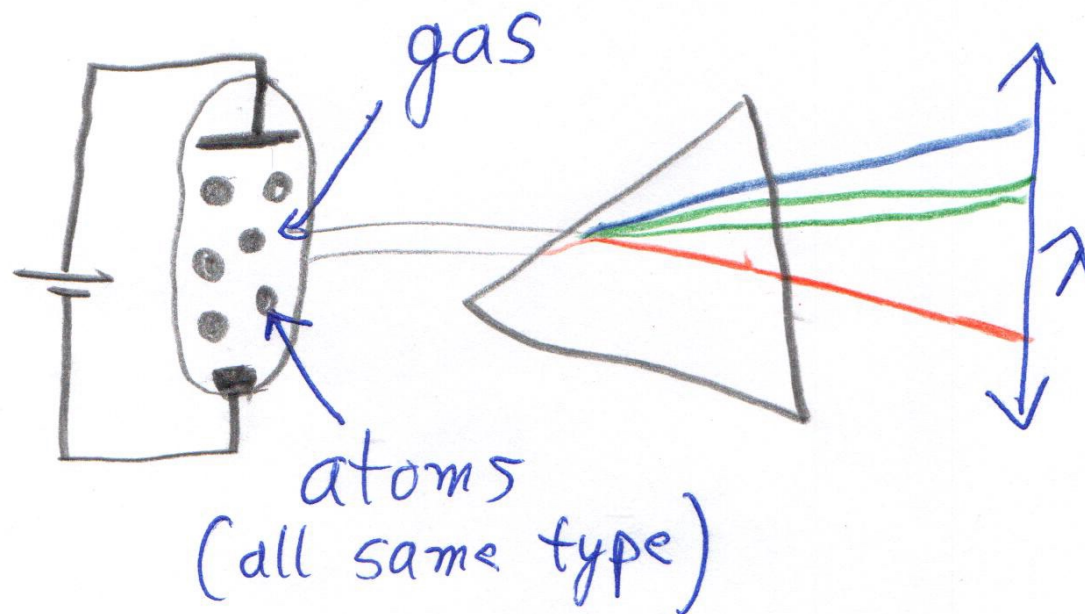 gas
λ
atoms
(all same type)